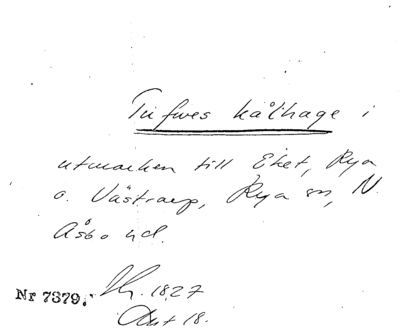 Tufwes kålhage i
utmarken till Eket, Rya
o. Västraup, Rya sn, N.
Åsbo hd.
Nr 7379. Lh. 1827
Akt 18.